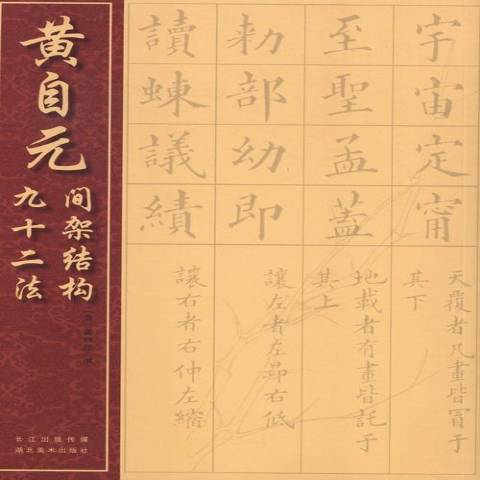 黄自元
间架结构
九十二法
长江出版传媒
湖北美术出版社
宇宙定甯
天覆者凡畫皆冒于
其下
至聖孟蓋
地載者有畫皆託于
其上
勅部幼即
讓左者左昂右低
讀蝀議績
讓右者右伸左縮